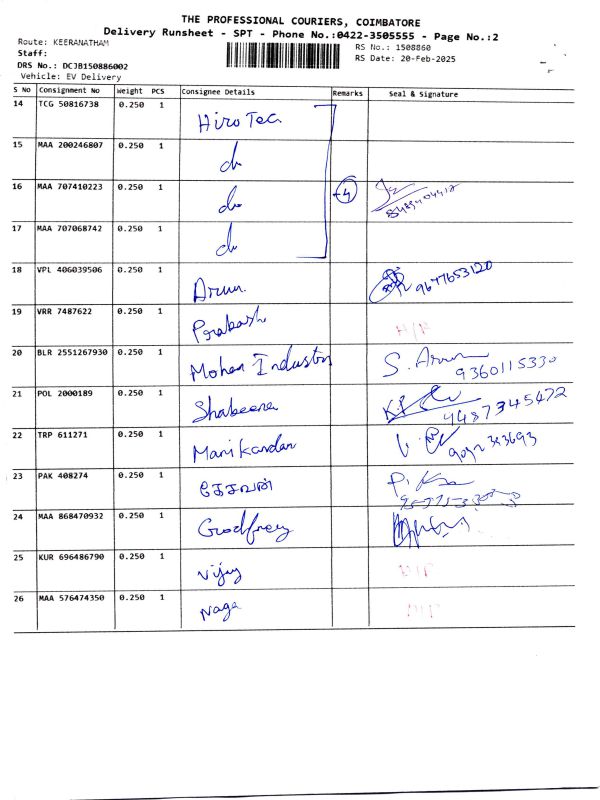 THE PROFESSIONAL COURIERS, COIMBATORE
Delivery Runsheet - SPT - Phone No.:0422-3505555 - Page No.:2
Route: KEERANATHAM
RS No.: 1508860
Staff:
RS Date: 20-Feb-2025
DRS No.: DCJB150886002
Vehicle: EV Delivery
S No Consignment No Weight PCS Consignee Details Remarks Seal & Signature
14 TCG 50816738 0.250 1 Hiro Tec
15 MAA 200246807 0.250 1 do
16 MAA 707410223 0.250 1 do 4
17 MAA 707068742 0.250 1 do
18 VPL 406039506 0.250 1 Arun 9677653120
19 VRR 7487622 0.250 1 Prakash
20 BLR 2551267930 0.250 1 Mohan Industry S. Arun
9360115330
21 POL 2000189 0.250 1 Shabeena
9487345472
22 TRP 611271 0.250 1 Manikandan
23 PAK 408274 0.250 1 கேசவன்
24 MAA 868470932 0.250 1 Godfrey
25 KUR 696486790 0.250 1 Vijay
26 MAA 576474350 0.250 1 Naga